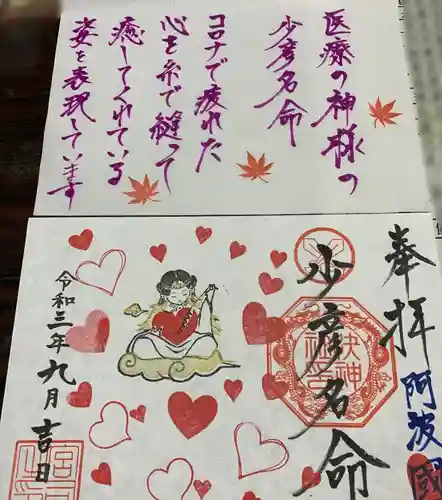 医療の神様の
少彦名命
コロナで疲れた
心を糸で縫って
癒してくれている
姿を表現しています
奉拝
阿波國
少彦名命
令和三年九月吉日